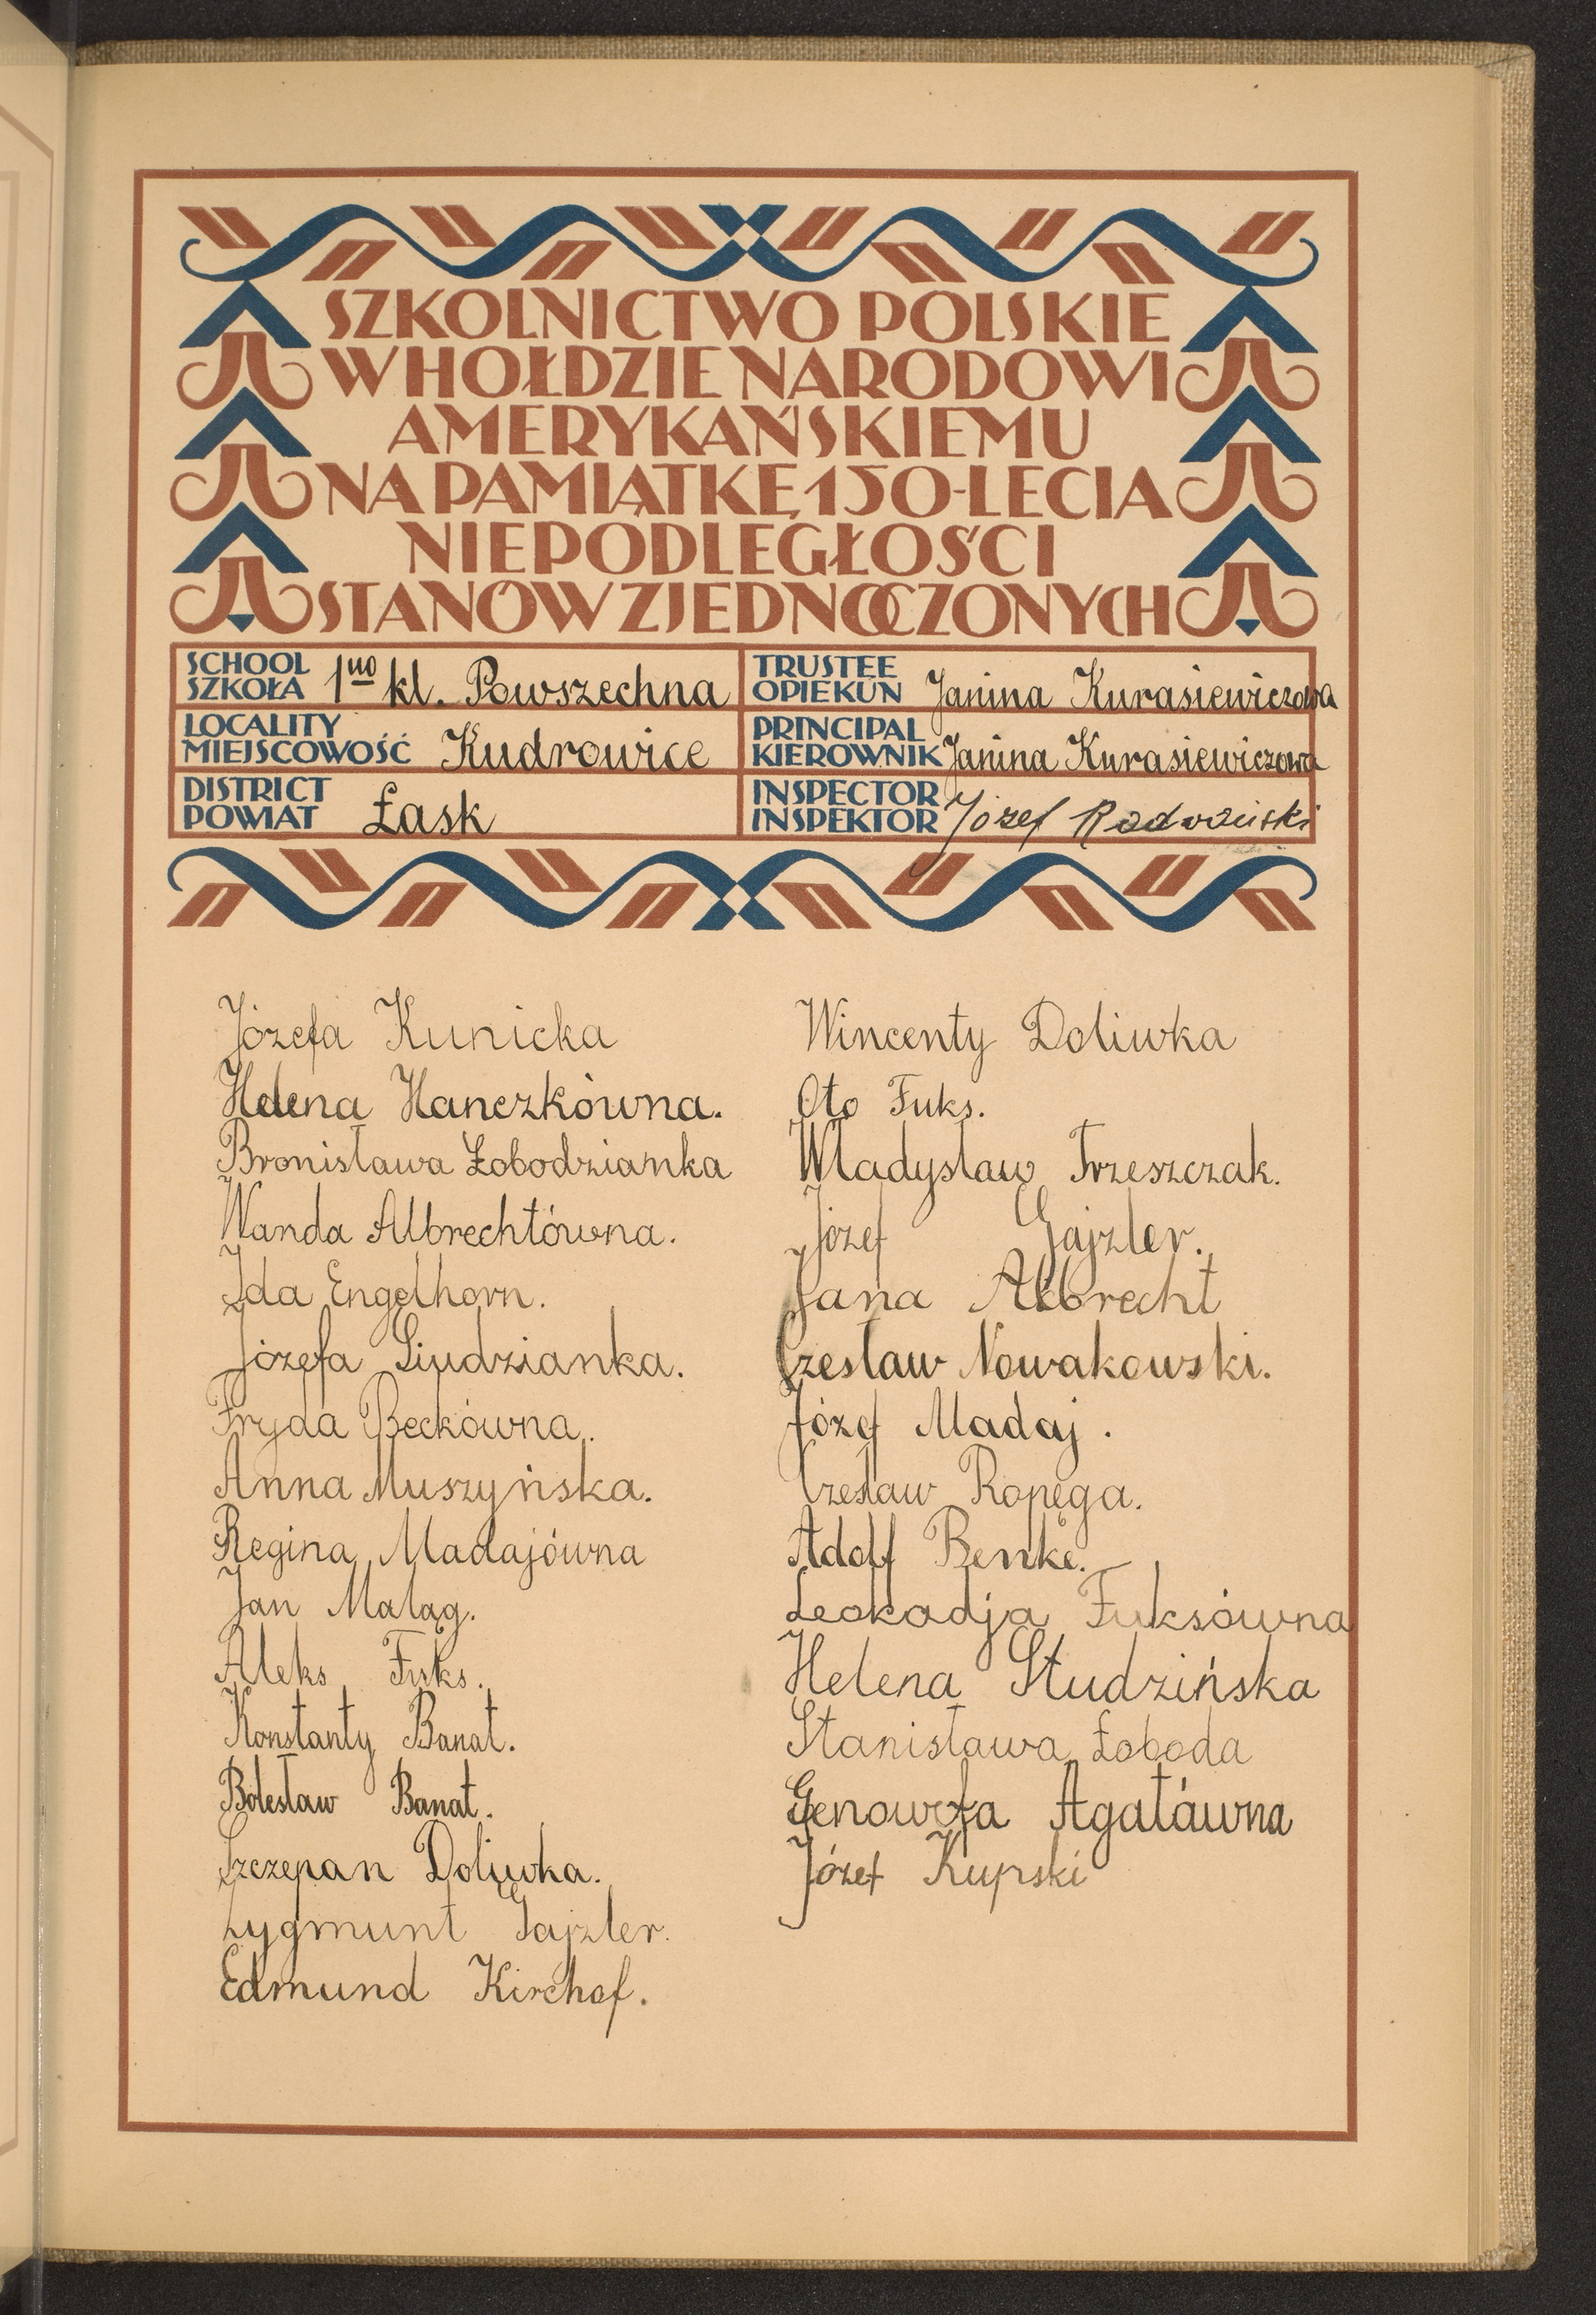 SZKOLNICTWO POLSKIE
W HOŁDZIE NARODOWI
AMERYKAŃSKIEMU
NA PAMIĄTKĘ 150-LECIA
NIEPODLEGŁOŚCI
STANÓW ZJEDNOCZONYCH
SCHOOL
SZKOŁA 1no kl. Powszechna
TRUSTEE
OPIEKUN Janina Kurasiewiczowa
LOCALITY
MIEJSCOWOŚĆ Kudrowice
PRINCIPAL
KIEROWNIK Janina Kurasiewiczowa
DISTRICT
POWIAT Łask
INSPECTOR
INSPEKTOR Józef Radwański
Józefa Kunicka
Helena Hanczkówna.
Bronisława Łobodzianka
Wanda Albrechtówna.
Ida Engelhorn.
Józefa Siudzianka.
Fryda Beckówna.
Anna Muszyńska.
Regina Madajówna
Jan Maląg.
Aleks Fuks.
Konstanty Banat.
Bolesław Banat.
Szczepan Doliwka.
Zygmunt Gajzler.
Edmund Kirchof.
Wincenty Doliwka
Oto Fuks.
Władysław Trzeszczak.
Józef Gajzler.
Jana Albrecht
Czesław Nowakowski.
Józef Madaj.
Czesław Ropęga.
Adolf Benke.
Leokadja Fuksówna
Helena Studzińska
Stanisława Łoboda
Genowefa Agatáwna
Józef Kupski